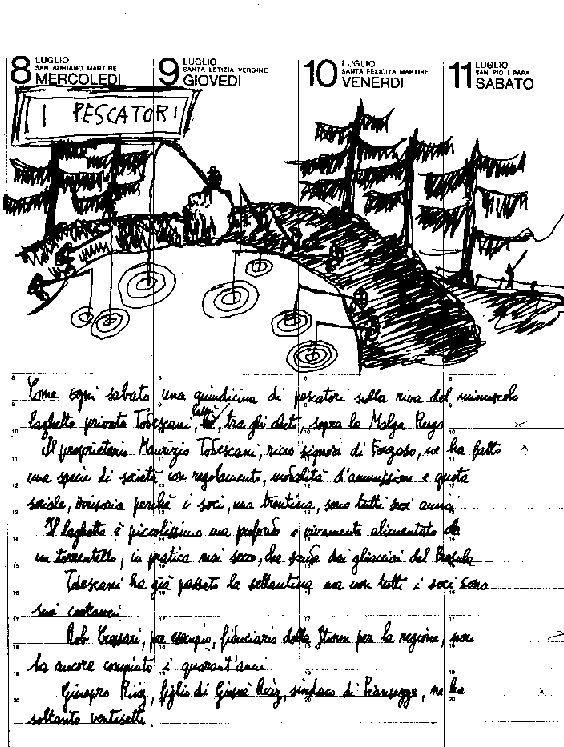 8 LUGLIO SAN ADRIANO MARTIRE MERCOLEDI
9 LUGLIO SANTA LETIZIA VERGINE GIOVEDI
10 LUGLIO SANTA FELICITA MARTIRE VENERDI
11 LUGLIO SAN PIO I PAPA SABATO
I PESCATORI
Come ogni sabato una quindicina di pescatori sulla riva del minuscolo
laghetto privato Todescani, tra gli abeti, sopra la Malga
Il proprietario Maurizio Todescani, ricco signore di ne ha fatto
una specie di società con regolamento, modalità d'ammissione e quota
sociale, perché i soci, una trentina, sono tutti suoi amici
Il laghetto è piccolissimo ma profondo e vivamente alimentato da
un torrentello, in pratica mai secco, che scende dai ghiacciai del
Todescani ha già passato la settantina ma non tutti i soci sono
suoi coetanei
Rob per esempio, fiduciario della per la regione, non
ha ancora compiuto i quarant'anni
figlio di sindaco di ne ha
soltanto ventisette